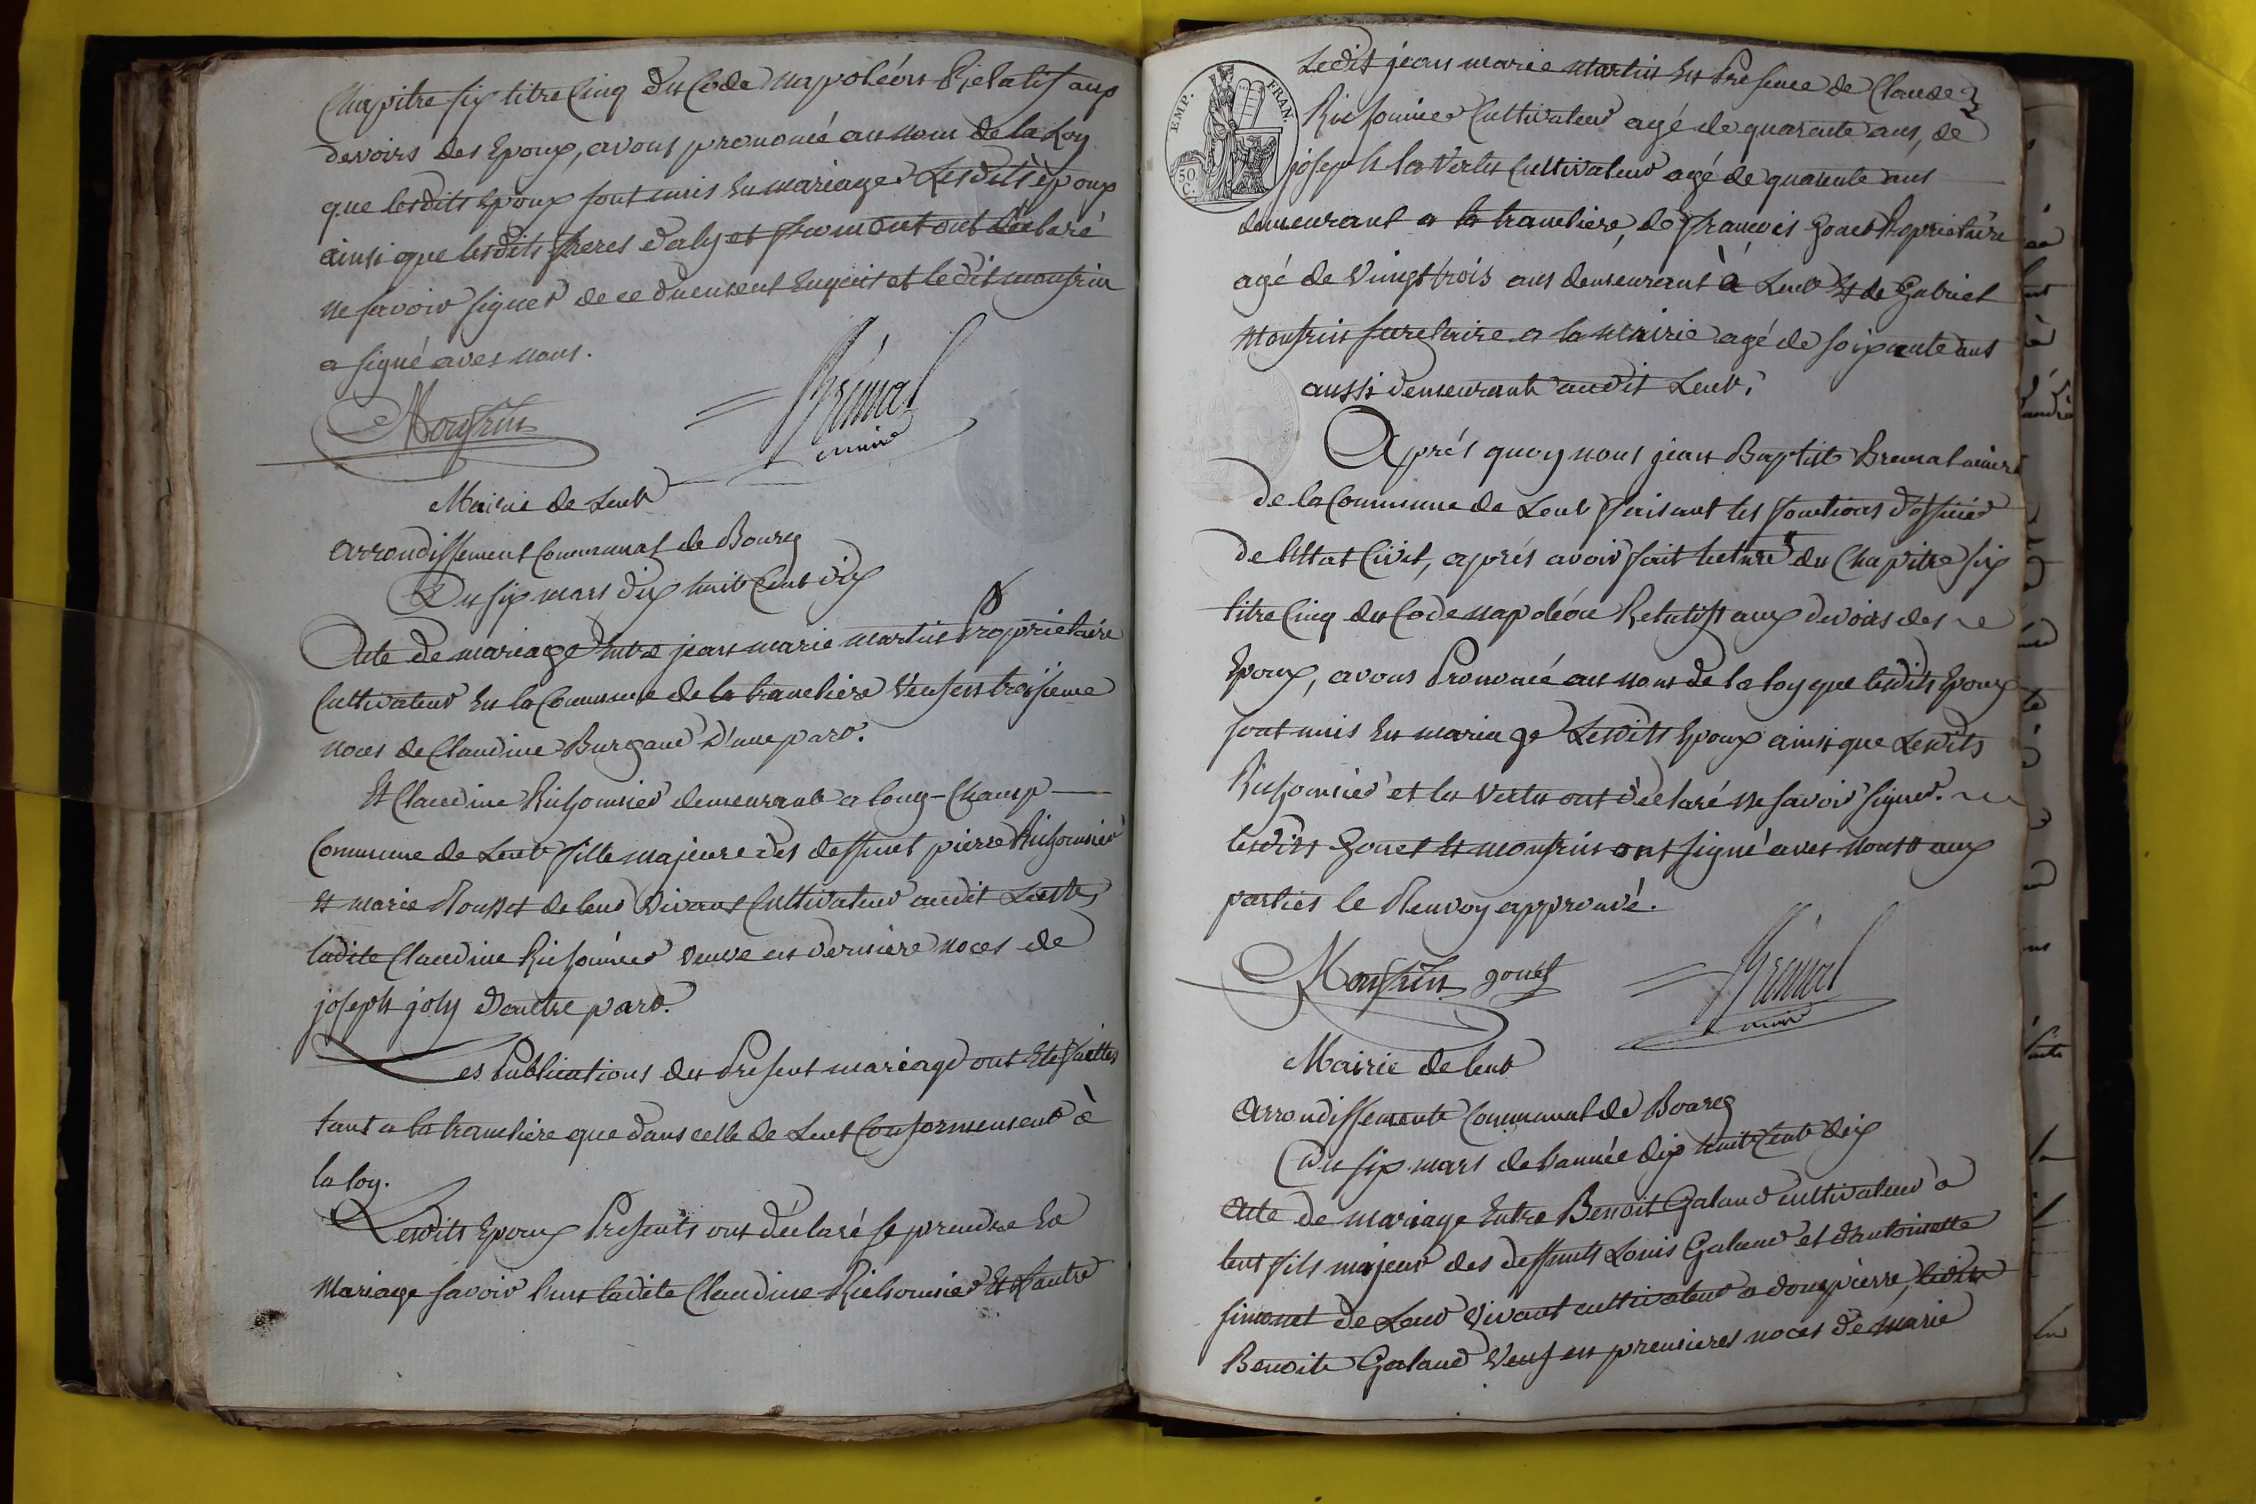 Chapitre six titre Cinq du Code Napoléon Relatif aux
devoirs des Epoux, avons prononcé au nom de la Loy
que lesdits Epoux sont unis En mariage Lesdits époux
ainsi que lesdits freres et ont déclaré
ne savoir signer de ce duement Enquis et ledit monfrin
a signé avec nous.
Monfrin
Brémal
maire
Mairie de Lent
arrondissement Communal de Bourg
Du six mars dix huit Cent dix
Acte de mariage Entre jean marie martin Proprietaire
Cultivateur En la Commune de la tranchere Veuf en troisieme
noces de Claudine Burgaud D'une part.
Et Claudine Richonnier demeurante a long-Champ
Commune de Lent fille majeure des deffunt pierre Richonnier
Et marie Mousset de leur Vivant Cultivateur audit Lent,
ladite Claudine Richonnier veuve en derniere noces de
joseph joly d'autre part.
Les Publications du Present mariage ont Eté faittes
tant a la tranchere que dans celle de Lent Conformement à
la loy.
Lesdits Epoux Presents ont déclaré se prendre En
Mariage savoir l'un ladite Claudine Richonnier Et L'autre
EMP. FRAN.
50 C.
Ledit jean marie martin En Presence de Claude
Richonnier Cultivateur agé de quarante ans, de
joseph la Vertu Cultivateur agé de quarente ans
demeurant a la tranchere, de françois gonet Proprietaire
agé de vingt trois ans demeurant à Lent Et de Gabriel
Monfrin secretaire a la Mairie agé de soixante ans
aussi demeurant audit Lent.
Après quoy nous jean Baptiste Bremal maire
de la Commune de Lent faisant les fonctions d'officier
de l'Etat Civil, après avoir fait lecture du Chapitre six
titre Cinq du Code napoléon Relatif aux devoirs des
Epoux, avons Prononcé au nom de la loy que lesdits Epoux
sont unis En mariage Lesdits Epoux ainsi que Lesdits
Richonnier et la Vertu ont déclaré ne savoir signer.
lesdits gonet Et monfrin ont signé avec nous aux
parties le Renvoy approuvé.
Monfrin gonet
Brémal
maire
Mairie de lent
arrondissement Communal de Bourg
Du six mars de l'année dix huit Cent dix
Acte de mariage Entre Benoit Galand cultivateur a
lent fils majeur des deffunts Louis Galand et d'antoinette
simonet de Leur Vivant cultivateur a dompierre, ledit
Benoite Galand Veuf en premieres noces de marie